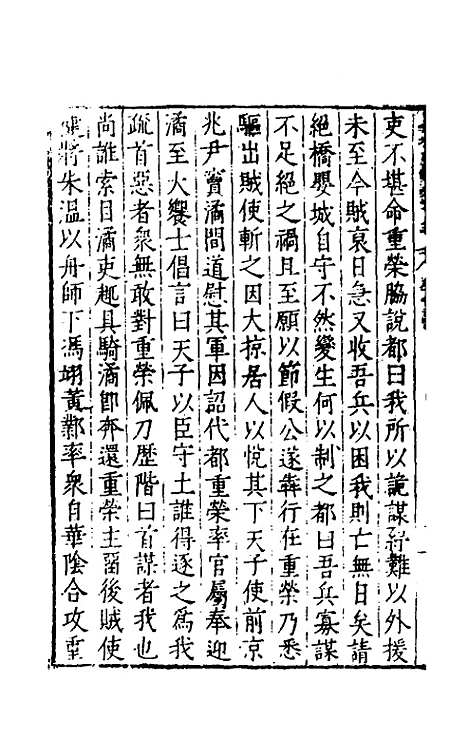 吏不堪命重榮脇說都曰我所以詭謀紓難以外援
未至今賊裒日急又收吾兵以困我則亡無日矣請
絕橋嬰城自守不然變生何以制之都曰吾兵寡謀
不足絕之禍且至願以節假公遂犇行在重榮乃悉
驅出賊使斬之因大掠居人以悅其下天子使前京
兆尹竇潏間道慰其軍因詔代都重榮率官屬奉迎
潏至大饗士倡言曰天子以臣守土誰得逐之爲我
疏首惡者衆無敢對重榮佩刀歷階曰首謀者我也
尚誰索目潏吏趣具騎潏卽奔還重榮主畱後賊使
健將朱溫以舟師下馮翊黃鄴率衆自華陰合攻重